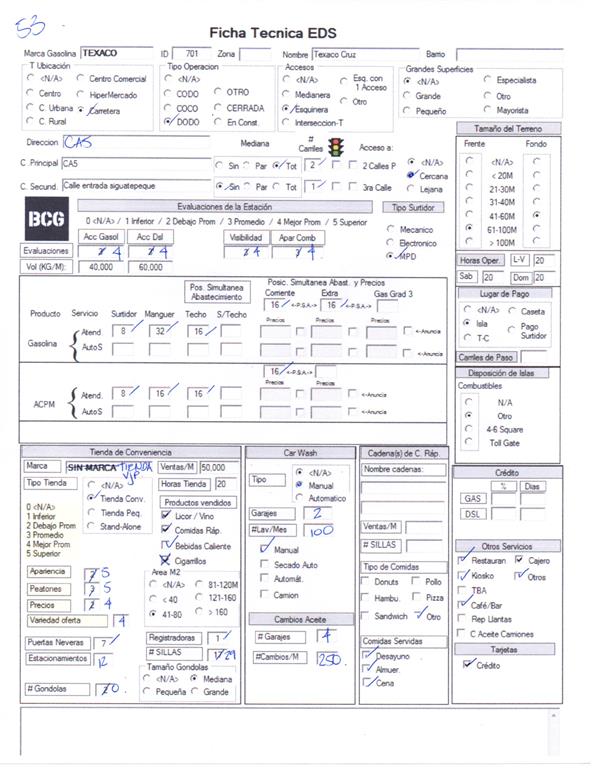 53
Ficha Tecnica EDS
Marca Gasolina TEXACO ID 701 Zona Nombre Texaco Cruz Barrio
T Ubicación
<N/A> Centro Comercial
Centro HiperMercado
C. Urbana Carretera
C. Rural
Tipo Operacion
<N/A>
CODO OTRO
COCO CERRADA
DODO En Const.
Accesos
<N/A> Esq. con 1 Acceso
Medianera Otro
Esquinera
Interseccion-T
Grandes Superficies
<N/A> Especialista
Grande Otro
Pequeño Mayorista
Direccion CA5 Mediana # Carriles Acceso a:
C. Principal CA5 Sin Par Tot 2 2 Calles P
C. Secund. Calle entrada siguatepeque Sin Par Tot 1 3ra Calle
<N/A>
Cercana
Lejana
Tamaño del Terreno
Frente Fondo
<N/A>
< 20M
21-30M
31-40M
41-60M
61-100M
> 100M
BCG
Evaluaciones de la Estación
0 <N/A> / 1 Inferior / 2 Debajo Prom / 3 Promedio / 4 Mejor Prom / 5 Superior
Acc Gasol Acc Dsl Visibilidad Apar Comb
Evaluaciones 4 4 4 4
Vol (KG/M): 40,000 60,000
Tipo Surtidor
Mecanico
Electronico
MPD
Horas Oper. L-V 20
Sab 20 Dom 20
Lugar de Pago
<N/A> Caseta
Isla Pago Surtidor
T-C
Carriles de Paso
Pos. Simultanea Abastecimiento
Posic. Simultanea Abast. y Precios
Corriente Extra Gas Grad 3
16 <-P.S.A.-> 16
Producto Servicio Surtidor Manguer Techo S/Techo Precios Precios Precios
Gasolina Atend. 8 32 16 <-Anuncia
AutoS
16 <-P.S.A.->
Precios Precios
ACPM Atend. 8 16 16 <-Anuncia
AutoS
Disposición de Islas
Combustibles
N/A
Otro
4-6 Square
Toll Gate
Tienda de Conveniencia
Marca SIN MARCA TIENDA VIP Ventas/M 50,000
Tipo Tienda
<N/A>
Tienda Conv.
Tienda Peq.
Stand-Alone
Horas Tienda 20
Productos vendidos
Licor / Vino
Comidas Ráp.
Bebidas Caliente
Cigarrllos
0 <N/A>
1 Inferior
2 Debajo Prom
3 Promedio
4 Mejor Prom
5 Superior
Apariencia 5
Peatones 5
Precios 4
Variedad oferta 4
Area M2
<N/A> 81-120M
< 40 121-160
41-80 > 160
Puertas Neveras 7
Estacionamientos 12
# Gondolas
Registradoras 1
# SILLAS 29
Tamaño Gondolas
<N/A> Mediana
Pequeña Grande
Car Wash
Tipo
<N/A>
Manual
Automatico
Garajes 2
#Lav/Mes 100
Manual
Secado Auto
Automát.
Camion
Cambios Aceite
# Garajes 4
#Cambios/M 250
Cadena(s) de C. Ráp.
Nombre cadenas:
Ventas/M
# SILLAS
Tipo de Comidas
Donuts Pollo
Hambu. Pizza
Sandwich Otro
Comidas Servidas
Desayuno
Almuer.
Cena
Crédito
% Dias
GAS
DSL
Otros Servicios
Restauran Cajero
Kiosko Otros
TBA
Café/Bar
Rep Llantas
C Aceite Camiones
Tarjetas
Crédito